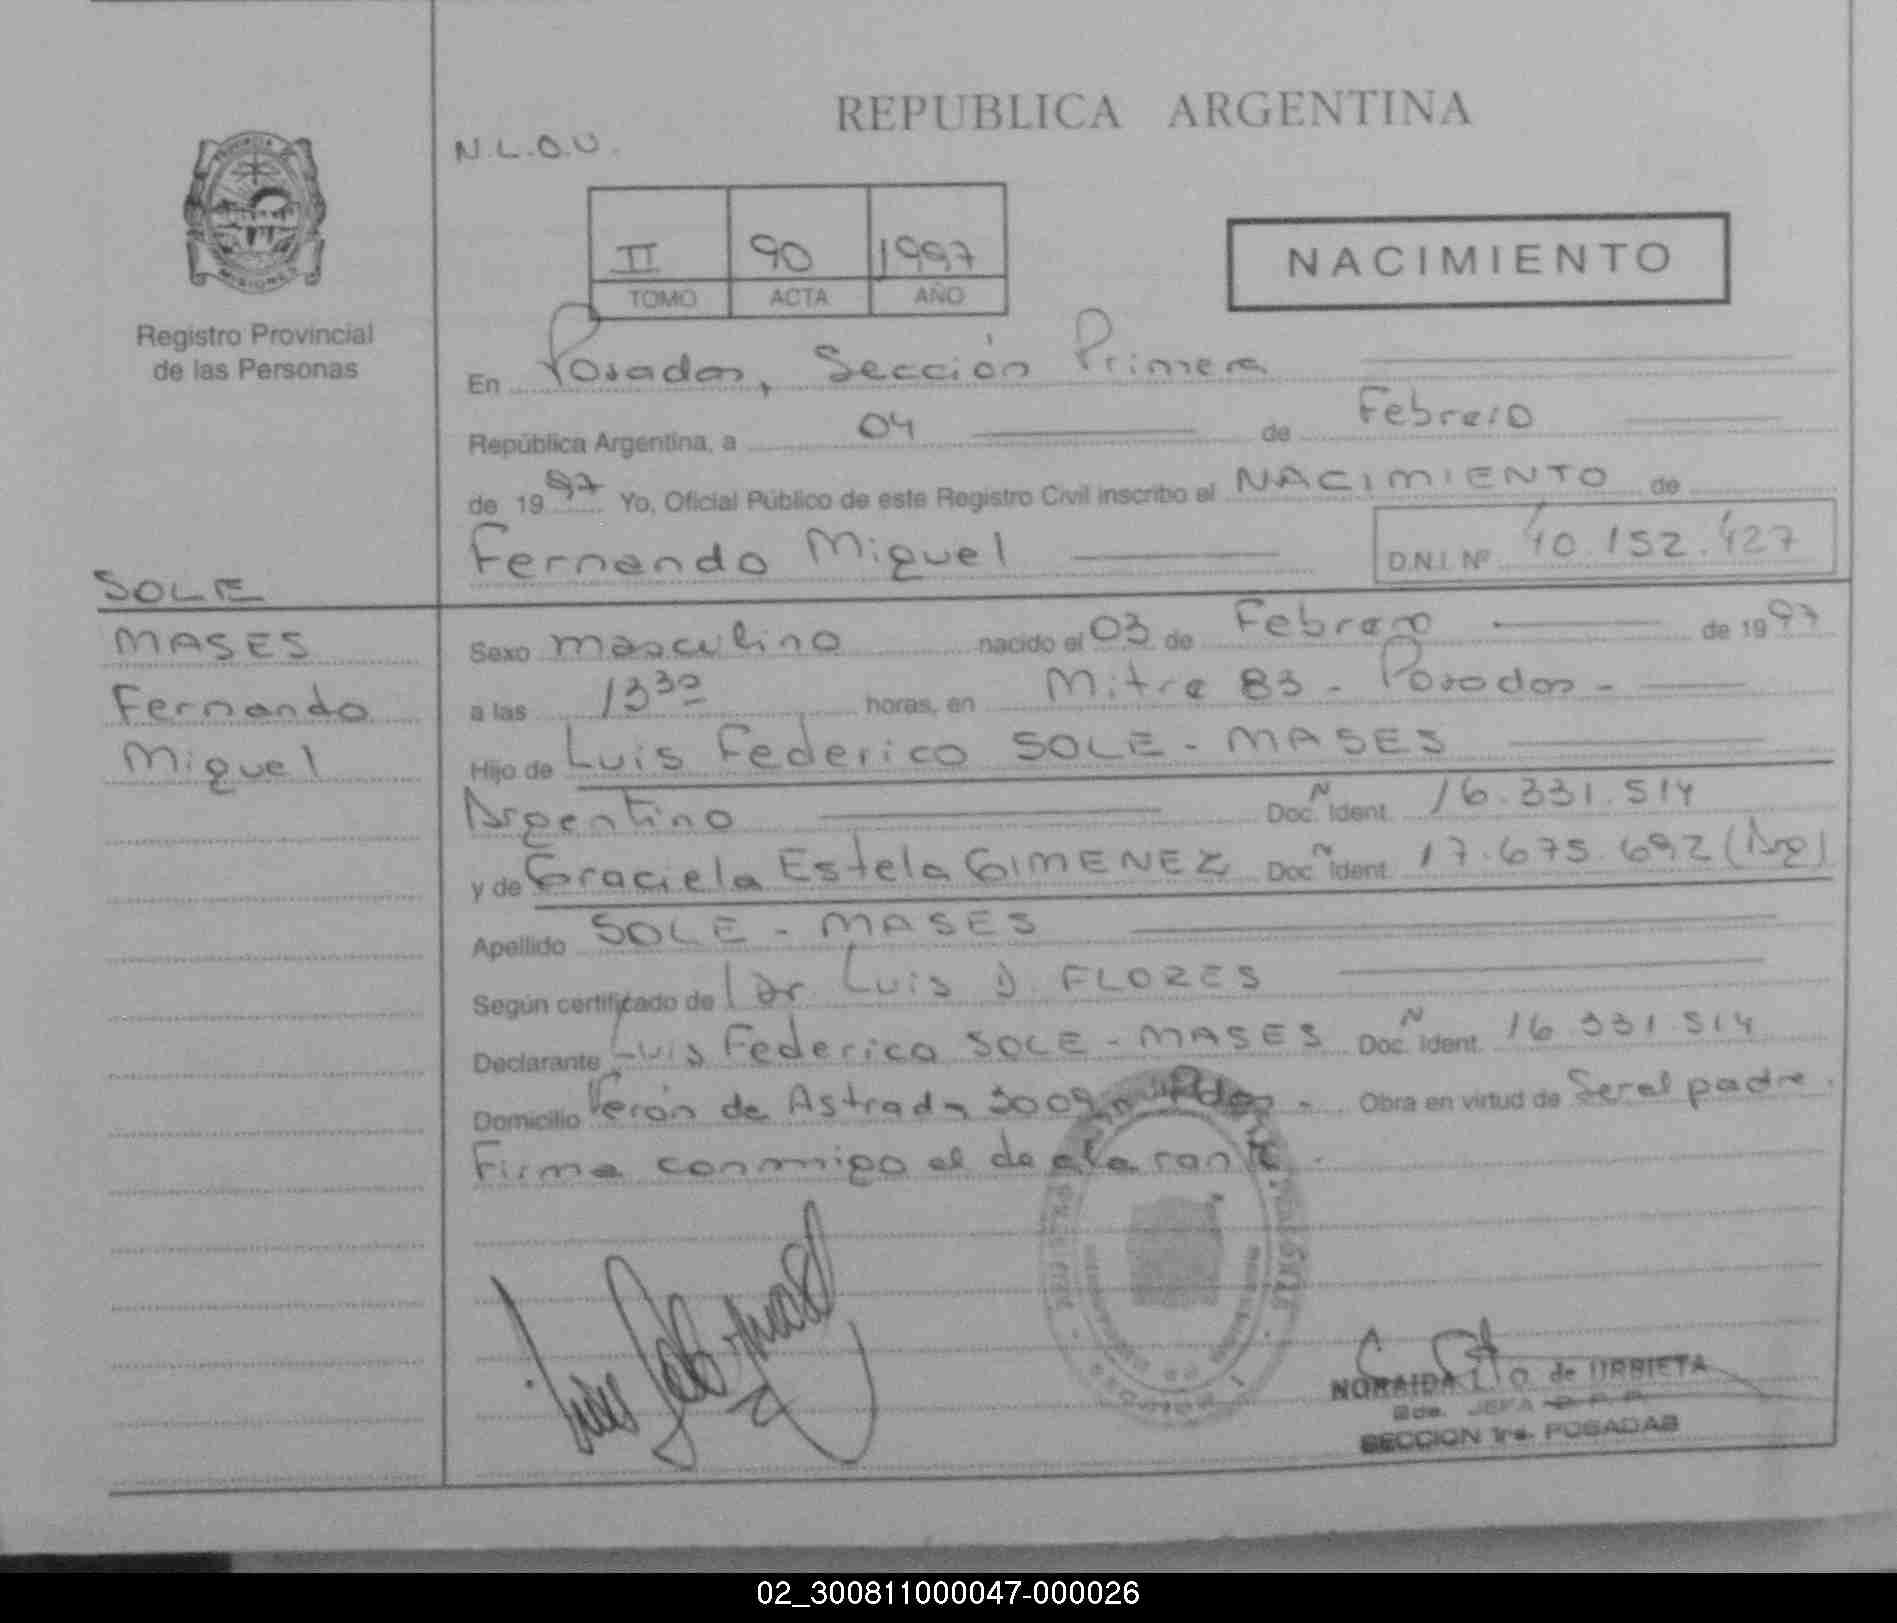 REPUBLICA ARGENTINA
N.L.O.U.
II 90 1997
TOMO ACTA AÑO
NACIMIENTO
PROVINCIA
MISIONES
Registro Provincial
de las Personas
En Posadas, Sección Primera
República Argentina, a 04 de Febrero
de 1997 Yo, Oficial Público de este Registro Civil inscribo el NACIMIENTO de
Fernando Miguel D.N.I. Nº 40.152.427
SOLE
MASES
Fernando
Miguel
Sexo masculino nacido el 03 de Febrero de 1997
a las 13 30 horas, en Mitre 83 - Posadas -
Hijo de Luis Federico SOLE - MASES
Argentino Doc. N Ident. 16.331.514
y de Graciela Estela GIMENEZ Doc. N Ident. 17.675.692 (Arg)
Apellido SOLE - MASES
Según certificado de Dr Luis D. FLORES
Declarante Luis Federico SOLE - MASES Doc. N Ident. 16 331.514
Domicilio Verón de Astrada 3009 - Pdas - Obra en virtud de Ser el padre.
Firma conmigo el declarante -
NORAIDA L. O. de URBIETA
SECCION 1ra. POSADAS
02_300811000047-000026